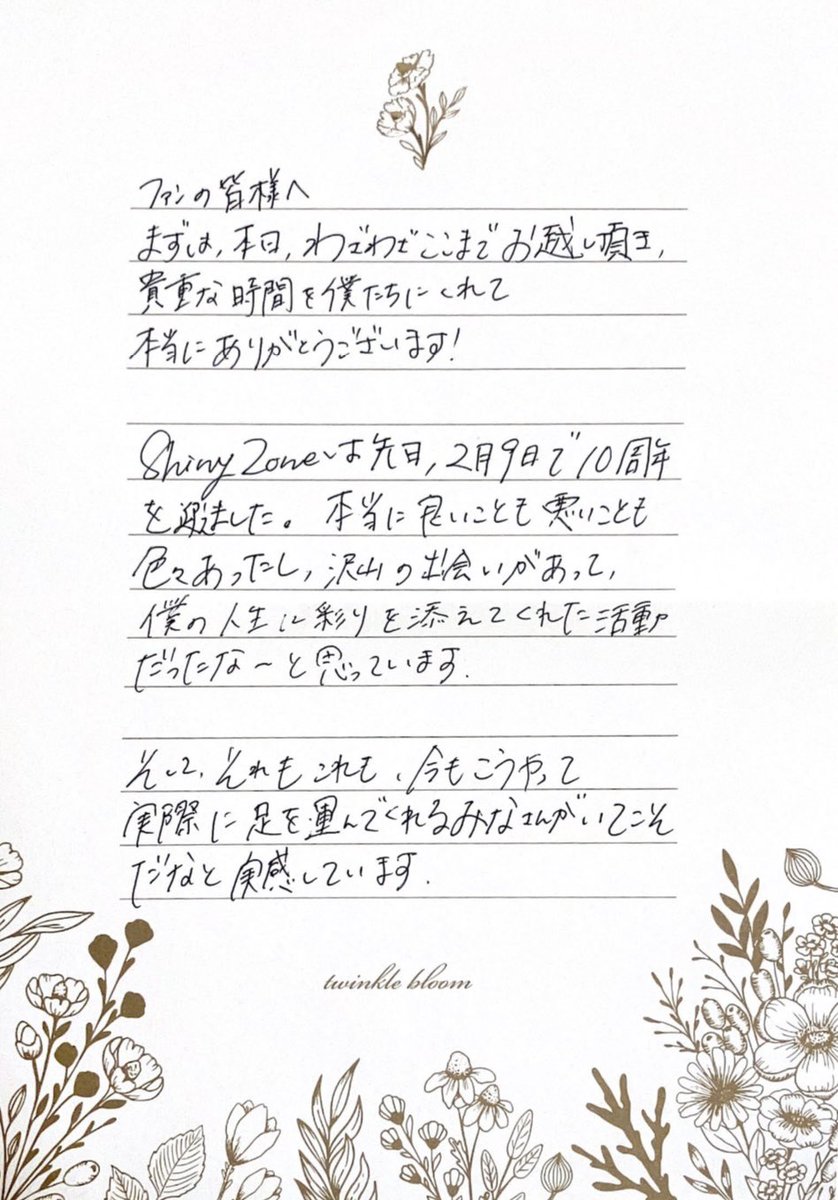 ファンの皆様へ
まずは,本日,わざわざここまでお越し頂き,
貴重な時間を僕たちにくれて
本当にありがとうございます!
Shiny Zoneは先日,2月9日で10周年
を迎えました。本当に良いことも悪いことも
色々あったし,沢山の出会いがあって,
僕の人生に彩りを添えてくれた活動
だったな〜と思っています.
そして,それもこれも,今もこうやって
実際に足を運んでくれるみなさんがいてこそ
だなと実感しています.
twinkle bloom